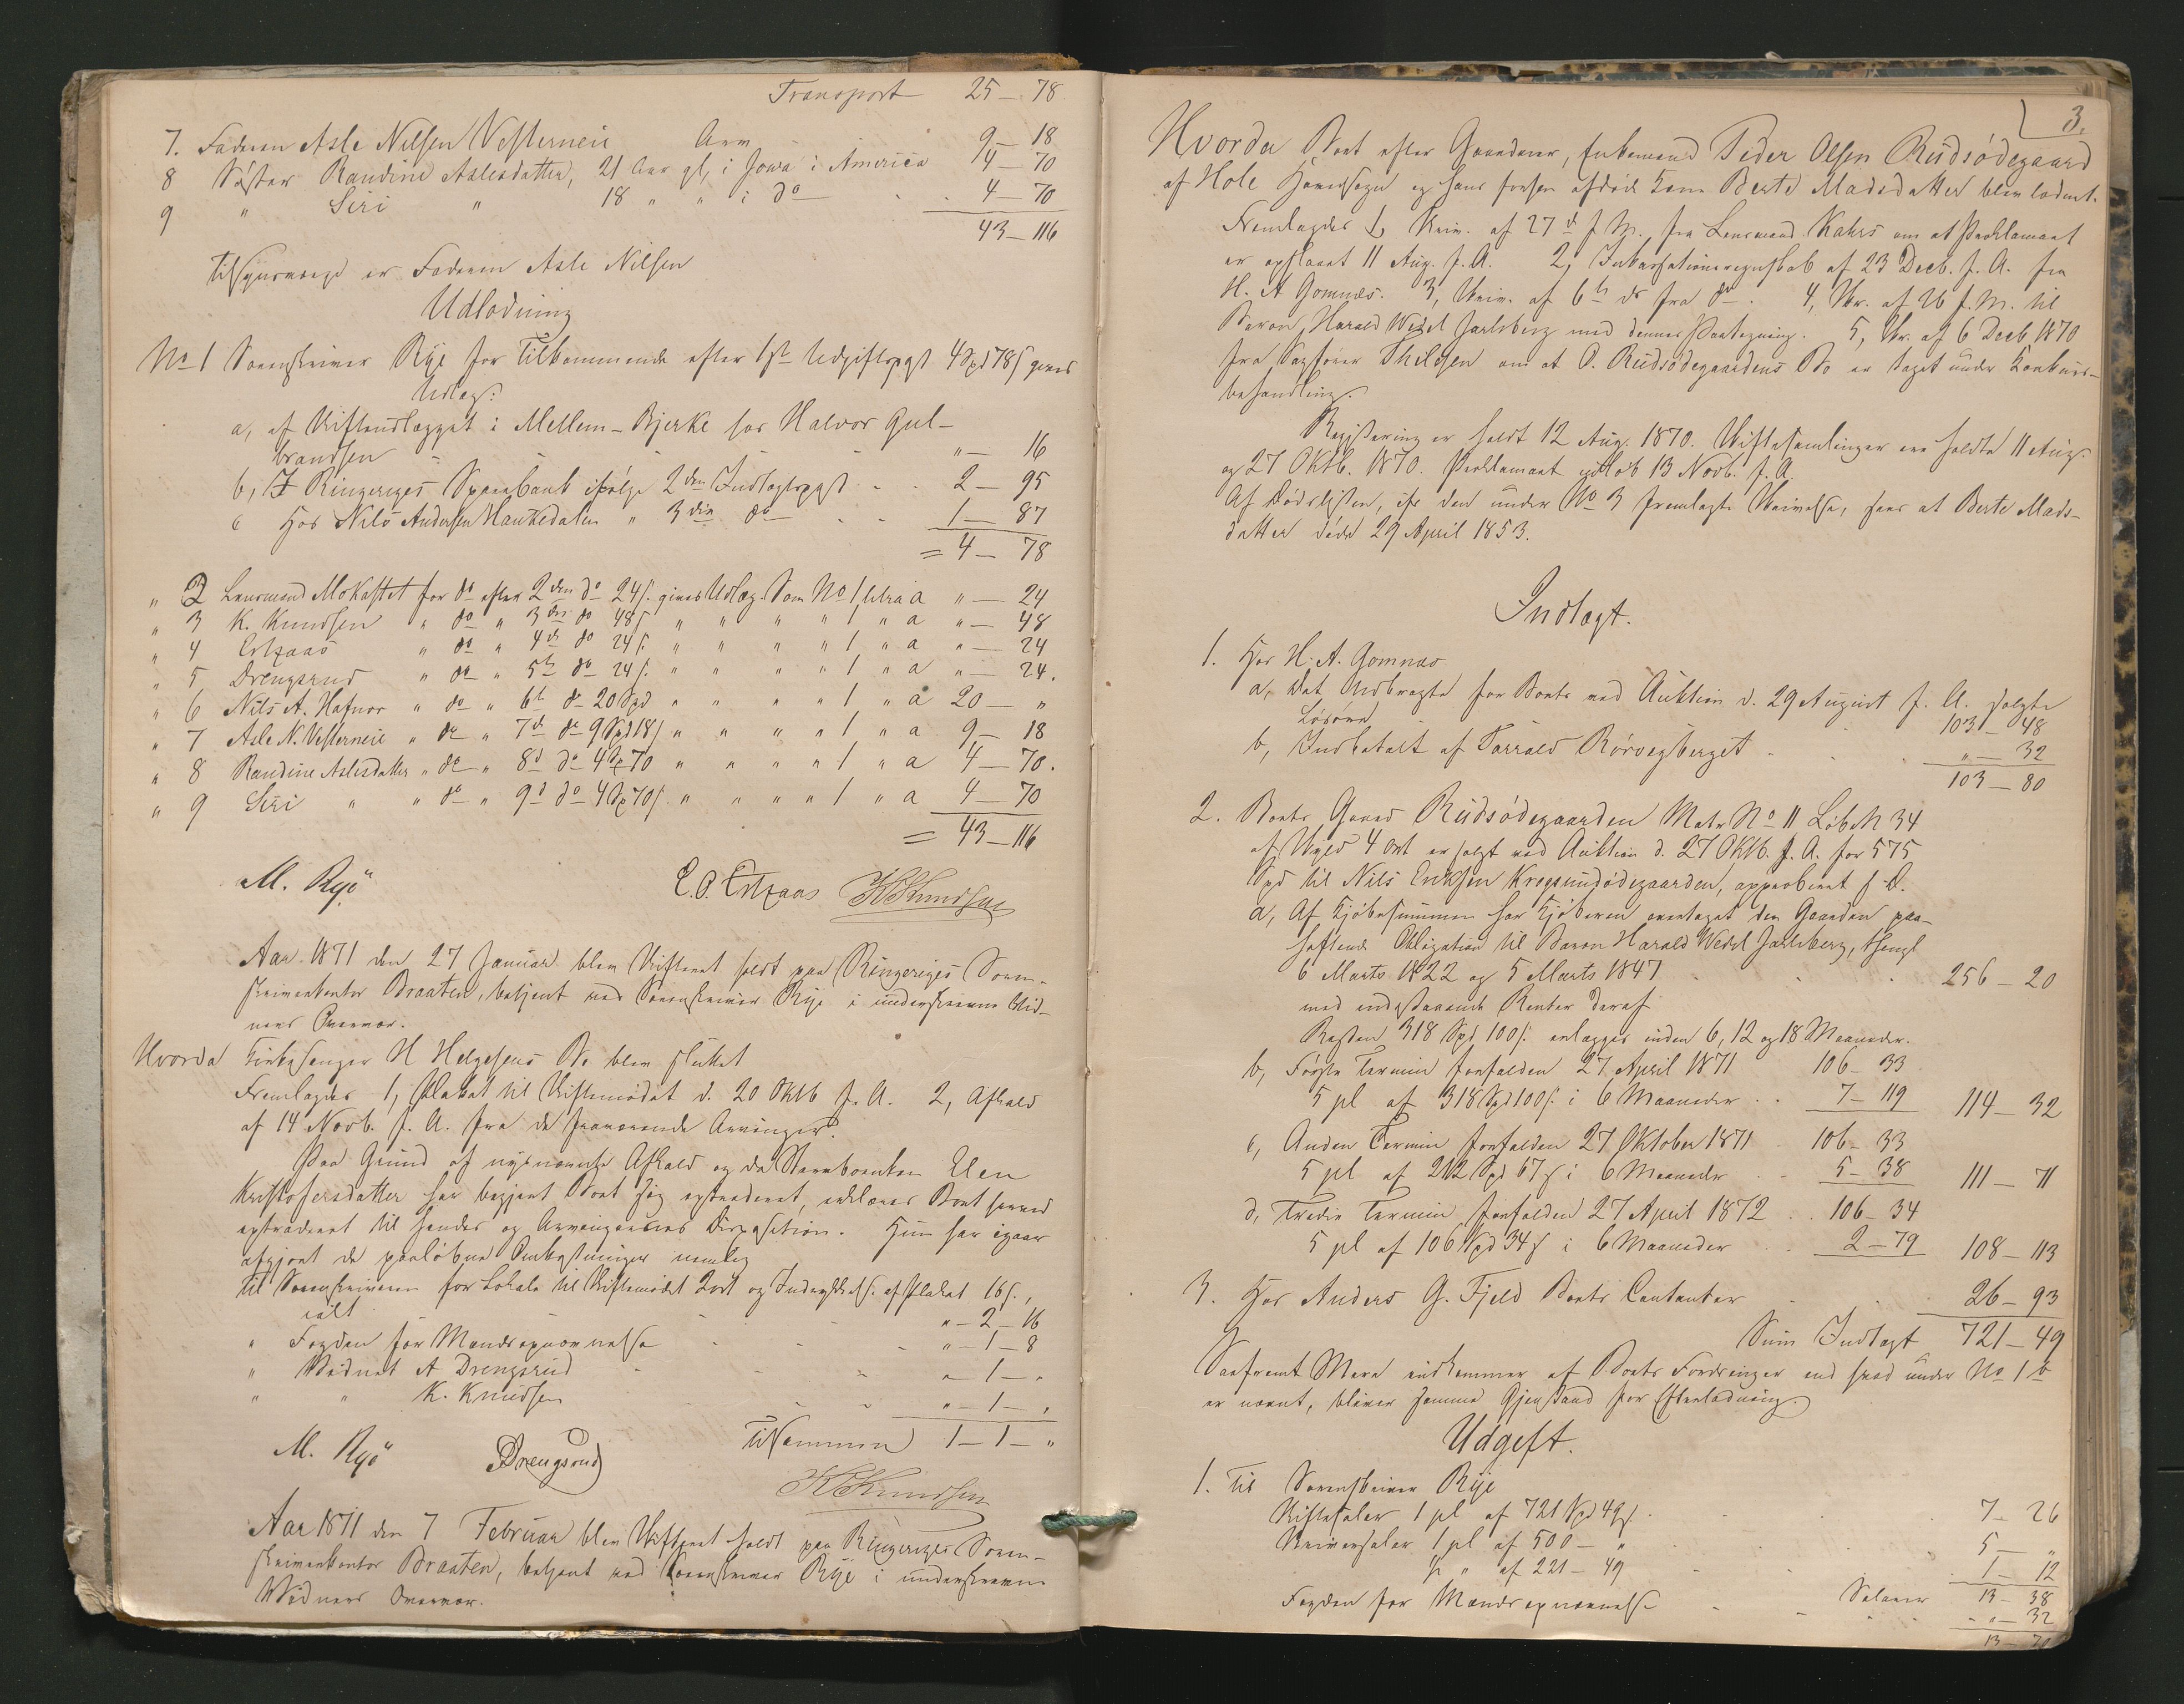 Transport 25 — 78
7. Faderen Asle Nilsen Vesterneie Arv 9 — 18
8 Søster Randine Aslesdatter, 21 Aar gl, i Jowa i America 4 — 70
9 " Siri " 18 " " i do 4 — 70
43 — 116
Tilsynsværge er Faderen Asle Nilsen
Udlodning
No 1 Sorenskriver Rye for Tilkommende efter 1ste Udgiftspost 4 Spd 78 s gives
Udlæg:
a, af Skifteudlægget i Mellem-Bjerke hos Halvor Gul-
brandsen " — 16
b, I Ringeriges Sparebank ifølge 2den Indtægtspost 2 — 95
c Hos Nils Andersen Haukedalen " 3die do 1 — 87
= 4 — 78
" 2 Lensmand Mokastet for do efter 2den do 24 s. gives Udlæg som No 1 Litra a " — 24
" 3 K. Knudsen " do " 3die do 48 s " " " " 1 " a " — 48
" 4 Ertzaas " do " 4de do 24 s. " " " " 1 " a " — 24
" 5 Drengsrud " do " 5te do 24 s. " " " " 1 " a " — 24.
" 6 Nils A. Hafnor " do " 6te do 20 Spd " " " " 1 " a 20 — "
" 7 Asle N. Vesterneie " do " 7de do 9 Spd 18 s " " " " 1 " a 9 — 18
" 8 Randine Aslesdatter " do " 8de do 4 Sp 70 " " " " 1 " a 4 — 70.
" 9 Siri " " do " 9de do 4 Sp 70 s. " " " " 1 " a 4 — 70
= 43 — 116
M. Rye E. O. Ertzaas K Knudsen
Aar 1871 den 27 Januar blev Skifteret holdt paa Ringeriges Soren-
skriverkontor Braaten, betjent ved Sorenskriver Rye i underskrevne Vid-
ners Overvær.
Hvorda Kirkesanger H Helgesens Bo blev sluttet
Fremlagdes 1, Plakat til Skiftemødet d. 20 Oktb f. A. 2, Afkald
af 14 Novb. f. A. fra de fraværende Arvinger.
Paa Grund af nysnævnte Afkald og da Stervboenken Elen
Kristofersdatter har begjært Boet sig extraderet, erklæres Boet herved
extraderet til hendes og Arvingernes Disposition. Hun har igaar
afgjort de paaløbne Omkostninger nemlig
til Sorenskriveren for Lokale til Skiftemødet 2 ort og Indrykkelse af Plakat 16 s.,
ialt " — 2 — 16
" Fogden for Mandsopnævnelse " — 1 — 8
" Vidnet A Drengsrud " — 1 — "
" " K. Knudsen " — 1 — "
Tilsammen 1 — 1 — "
M. Rye Drengsrud
K Knudsen
Aar 1871 den 7 Februar blev Skifteret holdt paa Ringeriges Soren-
skriverkontor Braaten, betjent ved Sorenskriver Rye i underskrevne
Vidners Overvær.
3.
Hvorda Boet efter Gaardmand, Enkemand Peder Olsen Rudsødegaard
af Hole Hovedsogn og hans forhen afdøde Kone Berte Madsdatter blev lodnet.
Fremlagdes 1, Skriv. af 27de f. M. fra Lensmand Kahrs om at Proklamaet
er opslaaet 11 Aug. f. A. 2, Inkassationsregnskab af 23 Decb. f. A. fra
H. A Gomnæs. 3, Skriv. af 6te ds fra do. 4, Skr. af 26 f. M. til
Baron Harald Wedel Jarlsberg med dennes Paategning. 5, Skr. af 6 Decb. 1870
fra Sagfører Thilesen om at O. Rudsødegaardens Bo er taget under Konkurs-
behandling.
Registrering er holdt 12 Aug. 1870. Skiftesamlinger ere holdte 11 Aug.
og 27 Oktb. 1870. Proklamaet udløb 13 Novb. f. A.
Af Dødslisten, cfr den under No 3 fremlagte Skrivelse, sees at Berte Mads-
datter døde 29 April 1853.
Indtægt.
1. Hos H. A. Gomnæs
a, Det indbragte for Boets ved Auktion d. 29 August f. A. solgte
Løsøre 103 — 48
b, Indbetalt af Torvald Rørvigberget " — 32
103 — 80
2. Boets Gaard Rudsødegaarden Matr No 11 Løb N 34
af Skyld 4 ort er solgt ved Auktion d. 27 Oktb. f. A. for 575
Spd til Nils Eriksen Krogsundødegaarden, approberet s. D.
a, Af Kjøbesummen har Kjøberen overtaget den Gaarden paa-
heftende Obligation til Baron Harald Wedel Jarlsberg, thingl
6 Marts 1822 og 5 Marts 1847 256 — 20
med indestaaende Renter deraf
Resten 318 Spd 100 s. erlægges inden 6, 12 og 18 Maaneder.
b, Første Termin forfalden 27 April 1871 106 — 33
5 pCt af 318 Spd 100 s. i 6 Maaneder 7 — 119 114 — 32
c, Anden Termin forfalden 27 Oktober 1871 106 — 33
5 pCt af 212 Spd 67 s i 6 Maaneder 5 — 38 111 — 71
d, Tredie Termin forfalden 27 April 1872 106 — 34
5 pCt af 106 Spd 34 s i 6 Maaneder 2 — 79 108 — 113
3. Hos Anders G. Fjeld Boets Contanter 26 — 93
Sum Indtægt 721 — 49
Saafremt Mere indkommer af Boets Fordringer end hvad under No 1 b
er nævnt, bliver samme Gjenstand for Efterlodning.
Udgift.
1. Til Sorenskriver Rye
Skiftesalær 1 pCt af 721 Spd 49 s. 7 — 26
Skriversalær 1 pCt af 500 — " 5 — "
½ " af 221 — 49 1 — 12
Salærer 13 — 38
Fogden for Mandsopnævnelse " — 32
13 — 70